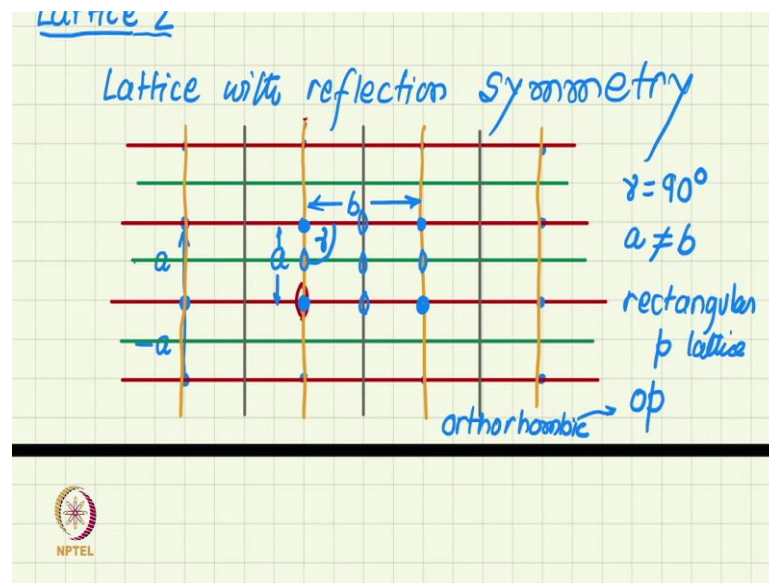 Lattice 2
Lattice with reflection symmetry
γ = 90°
b
a ≠ b
a
a
γ
rectangular
p lattice
-a
op
orthorhombic
NPTEL